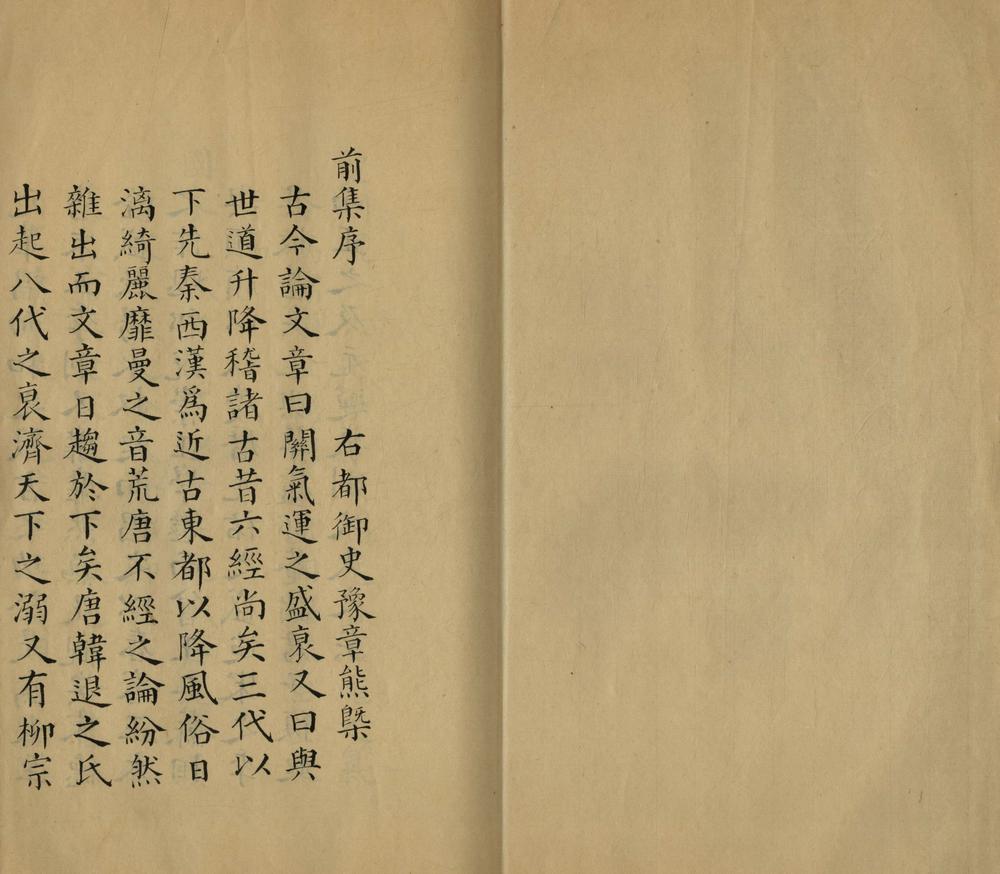 前集序 右都御史豫章熊槩
古今論文章曰關氣運之盛衰又曰與
世道升降稽諸古昔六經尚矣三代以
下先秦西漢為近古東都以降風俗日
漓綺麗靡曼之音荒唐不經之論紛然
雜出而文章日趨於下矣唐韓退之氏
出起八代之衰濟天下之溺又有柳宗